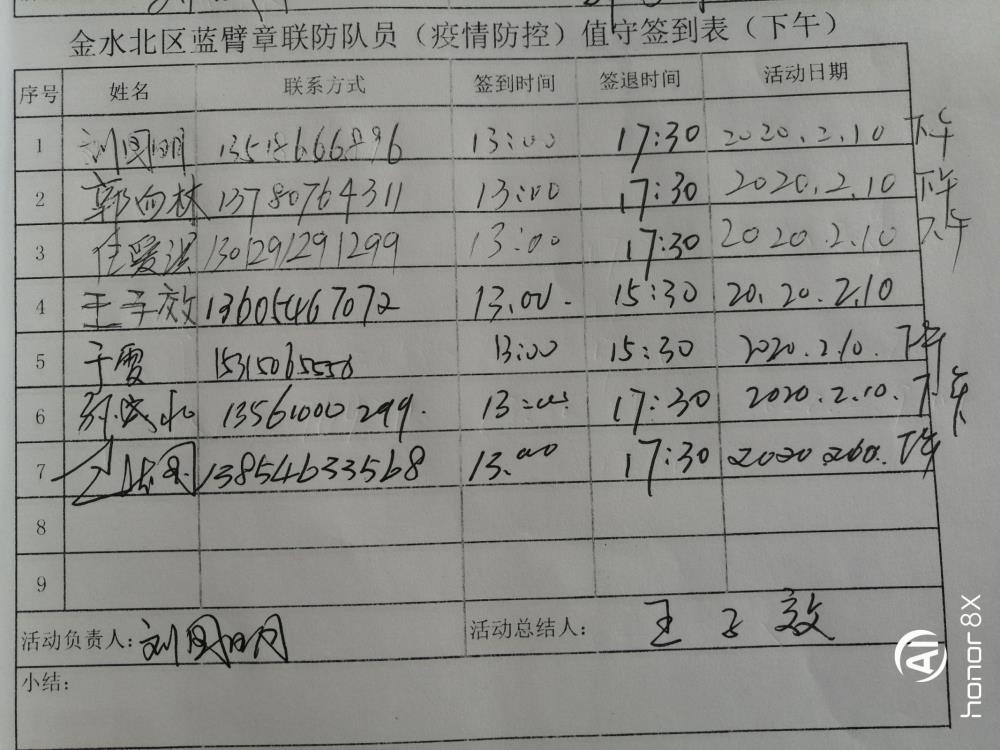 金水北区蓝臂章联防队员（疫情防控）值守签到表（下午）
序号 姓名 联系方式 签到时间 签退时间 活动日期
1 刘国明 13518666896 13:00 17:30 2020.2.10 下午
2 郭向林 13780764311 13:00 17:30 2020.2.10 下午
3 任爱滨 1301291291299 13:00 17:30 2020.2.10 下午
4 王子效 13605467072 13.00. 15:30 20.20.2.10
5 于霞 15315065556 13:00 15:30 2020.2.10. 下午
6 13561000299. 13:00 17:30 2020.2.10. 下午
7 13854633568 13.00 17:30 下午
8
9
活动负责人: 刘国明 活动总结人: 王子效
小结:
AI
honor 8X